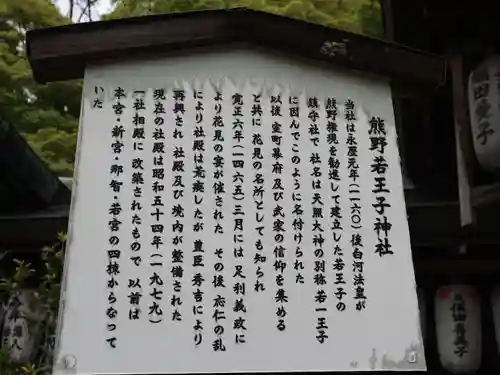 熊野若王子神社
当社は永歴元年（一一六〇）後白河法皇が
熊野権現を勧進して建立した若王子の
鎮守社で 社名は天照大神の別称 若一王子
に因んでこのように名付けられた
以後 室町幕府及び武家の信仰を集める
と共に 花見の名所としても知られ
寛正六年（一四六五）三月には 足利 義政に
より花見の宴が催された その後 応仁の乱
により社殿は荒廃したが 豊臣 秀吉により
再興され 社殿及び境内が整備された
現在の社殿は昭和五十四年（一九七九）
一社相殿に改築されたもので 以前は
本宮・新宮・那智・若宮の四棟からなって
いた